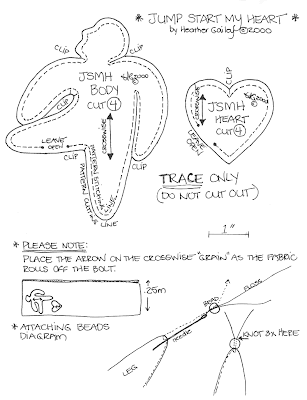 * "JUMP START MY HEART" *
by Heather Gailey ©2000
CLIP
JSMH
BODY
CUT 4
©2000
CLIP
CROSSWISE
LEAVE
OPEN
CLIP
CLIP
LINE
CLIP
CROSSWISE
JSMH
HEART
CUT 4
©2000
LEAVE
OPEN
TRACE ONLY
(DO NOT CUT OUT)
1"
* PLEASE NOTE:
PLACE THE ARROW ON THE CROSSWISE "GRAIN" AS THE FABRIC
ROLLS OFF THE BOLT.
.25m
* ATTACHING BEADS
DIAGRAM
BEAD
FLOSS
NEEDLE
KNOT 3X HERE
LEG